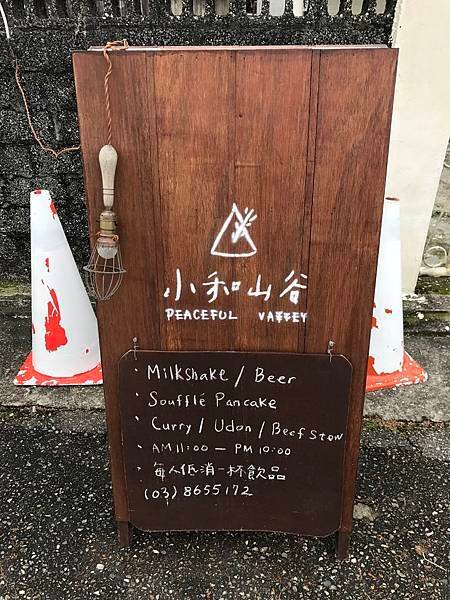 小和山谷
PEACEFUL VALLEY
· Milkshake / Beer
· Soufflé Pancake
· Curry / Udon / Beef Stew
· AM 11:00 — PM 10:00
· 每人低消一杯飲品
(03) 8655172